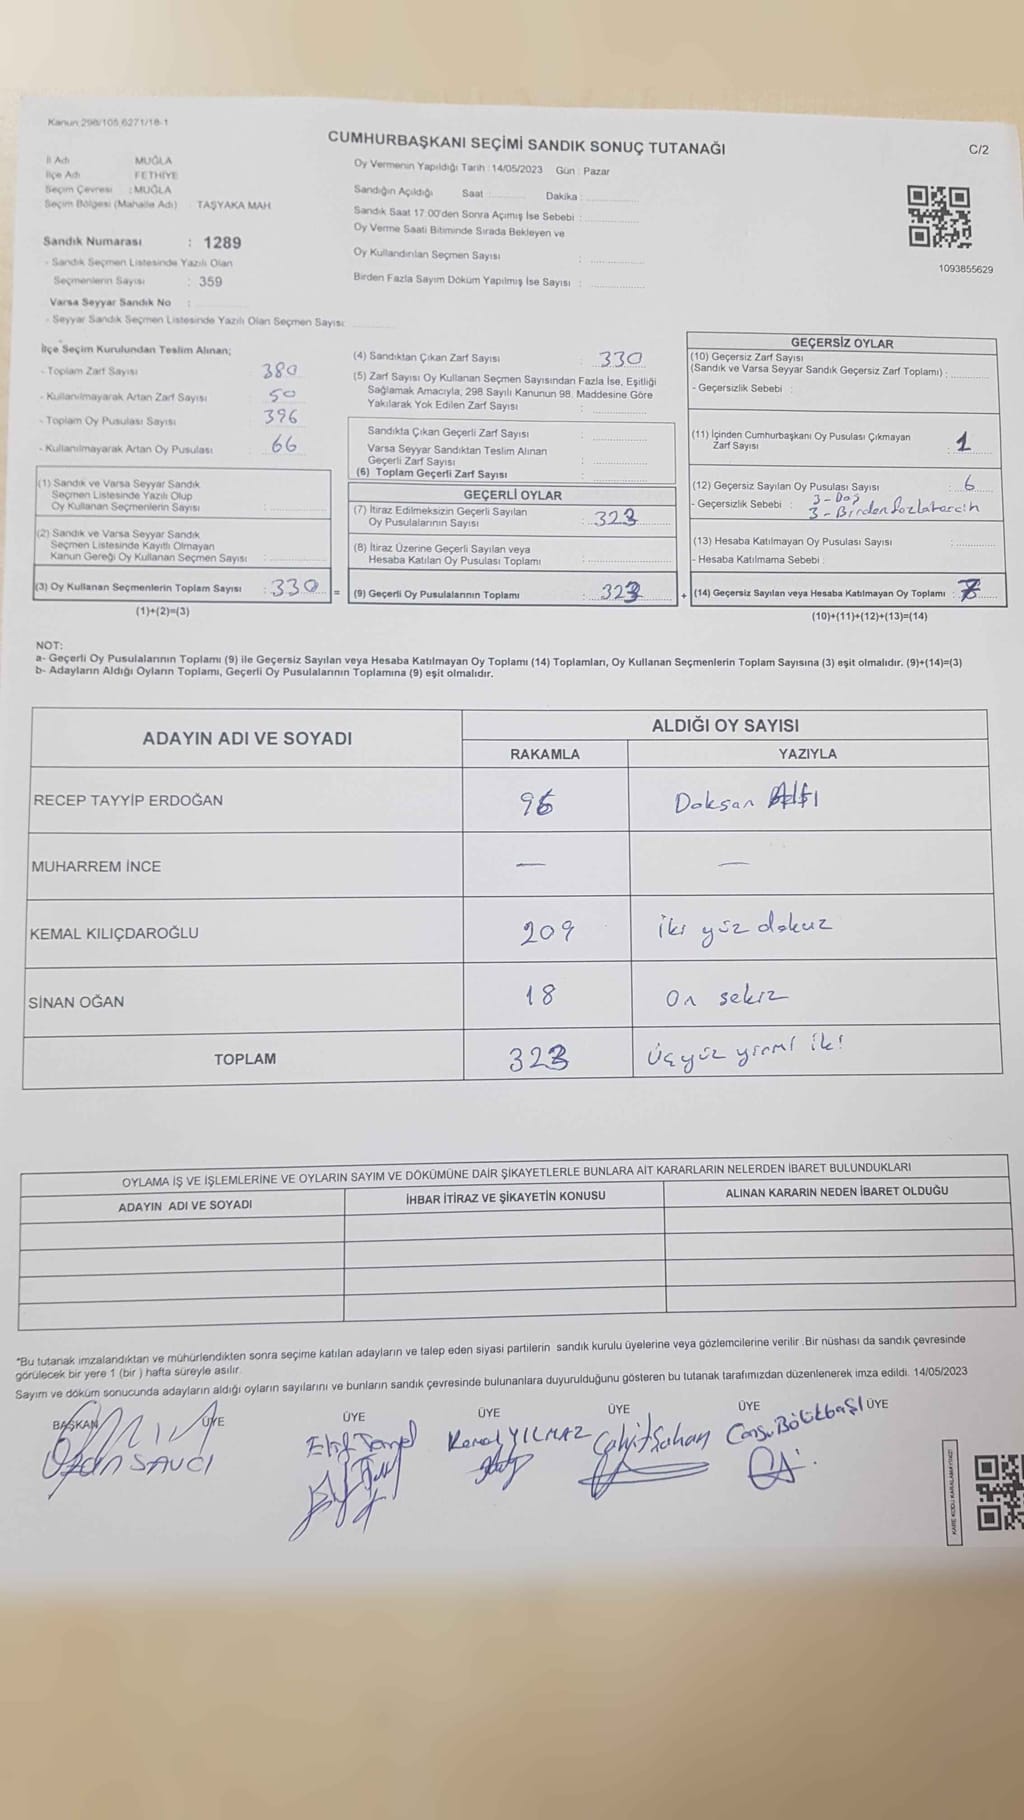 Kanun 298/105,6271/18-1
CUMHURBAŞKANI SEÇİMİ SANDIK SONUÇ TUTANAĞI
C/2
İl Adı MUĞLA
İlçe Adı FETHİYE
Seçim Çevresi : MUĞLA
Seçim Bölgesi (Mahalle Adı) : TAŞYAKA MAH.
Oy Vermenin Yapıldığı Tarih : 14/05/2023 Gün : Pazar
Sandığın Açıldığı Saat : Dakika :
Sandık Saat 17.00'den Sonra Açımış İse Sebebi :
Oy Verme Saati Bitiminde Sırada Bekleyen ve
Oy Kullandırılan Seçmen Sayısı :
Birden Fazla Sayım Döküm Yapılmış İse Sayısı :
1093855629
Sandık Numarası : 1289
- Sandık Seçmen Listesinde Yazılı Olan
Seçmenlerin Sayısı : 359
Varsa Seyyar Sandık No :
- Seyyar Sandık Seçmen Listesinde Yazılı Olan Seçmen Sayısı:
İlçe Seçim Kurulundan Teslim Alınan;
- Toplam Zarf Sayısı 380
- Kullanılmayarak Artan Zarf Sayısı : 50
- Toplam Oy Pusulası Sayısı 396
- Kullanılmayarak Artan Oy Pusulası : 66
(1) Sandık ve Varsa Seyyar Sandık
Seçmen Listesinde Yazılı Olup
Oy Kullanan Seçmenlerin Sayısı :
(2) Sandık ve Varsa Seyyar Sandık
Seçmen Listesinde Kayıtlı Olmayan
Kanun Gereği Oy Kullanan Seçmen Sayısı :
(3) Oy Kullanan Seçmenlerin Toplam Sayısı : 330 =
(1)+(2)=(3)
(4) Sandıktan Çıkan Zarf Sayısı : 330
(5) Zarf Sayısı Oy Kullanan Seçmen Sayısından Fazla İse, Eşitliği
Sağlamak Amacıyla, 298 Sayılı Kanunun 98. Maddesine Göre
Yakılarak Yok Edilen Zarf Sayısı :
Sandıkta Çıkan Geçerli Zarf Sayısı :
Varsa Seyyar Sandıktan Teslim Alınan
Geçerli Zarf Sayısı :
(6) Toplam Geçerli Zarf Sayısı :
GEÇERLİ OYLAR
(7) İtiraz Edilmeksizin Geçerli Sayılan
Oy Pusulalarının Sayısı : 323
(8) İtiraz Üzerine Geçerli Sayılan veya
Hesaba Katılan Oy Pusulası Toplamı :
(9) Geçerli Oy Pusulalarının Toplamı : 323 +
GEÇERSİZ OYLAR
(10) Geçersiz Zarf Sayısı
(Sandık ve Varsa Seyyar Sandık Geçersiz Zarf Toplamı) :
- Geçersizlik Sebebi :
(11) İçinden Cumhurbaşkanı Oy Pusulası Çıkmayan
Zarf Sayısı : 1
(12) Geçersiz Sayılan Oy Pusulası Sayısı : 6
- Geçersizlik Sebebi : 3-Boş
3-Birden fazla tercih
(13) Hesaba Katılmayan Oy Pusulası Sayısı :
- Hesaba Katılmama Sebebi :
(14) Geçersiz Sayılan veya Hesaba Katılmayan Oy Toplamı : 7
(10)+(11)+(12)+(13)=(14)
NOT:
a- Geçerli Oy Pusulalarının Toplamı (9) ile Geçersiz Sayılan veya Hesaba Katılmayan Oy Toplamı (14) Toplamları, Oy Kullanan Seçmenlerin Toplam Sayısına (3) eşit olmalıdır. (9)+(14)=(3)
b- Adayların Aldığı Oyların Toplamı, Geçerli Oy Pusulalarının Toplamına (9) eşit olmalıdır.
ADAYIN ADI VE SOYADI ALDIĞI OY SAYISI
RAKAMLA YAZIYLA
RECEP TAYYİP ERDOĞAN 96 Doksan Altı
MUHARREM İNCE — —
KEMAL KILIÇDAROĞLU 209 İki yüz dokuz
SİNAN OĞAN 18 On sekiz
TOPLAM 323 Üçyüz yirmi iki
OYLAMA İŞ VE İŞLEMLERİNE VE OYLARIN SAYIM VE DÖKÜMÜNE DAİR ŞİKAYETLERLE BUNLARA AİT KARARLARIN NELERDEN İBARET BULUNDUKLARI
ADAYIN ADI VE SOYADI İHBAR İTİRAZ VE ŞİKAYETİN KONUSU ALINAN KARARIN NEDEN İBARET OLDUĞU
*Bu tutanak imzalandıktan ve mühürlendikten sonra seçime katılan adayların ve talep eden siyasi partilerin sandık kurulu üyelerine veya gözlemcilerine verilir .Bir nüshası da sandık çevresinde
görülecek bir yere 1 (bir ) hafta süreyle asılır.
Sayım ve döküm sonucunda adayların aldığı oyların sayılarını ve bunların sandık çevresinde bulunanlara duyurulduğunu gösteren bu tutanak tarafımızdan düzenlenerek imza edildi. 14/05/2023
BAŞKAN ÜYE ÜYE ÜYE ÜYE ÜYE ÜYE
Ozan SAVCI Elif Temel Kemal YILMAZ Cahit Şahan Cansu Bölükbaşı
KARE KODU KARALAMAYINIZ!